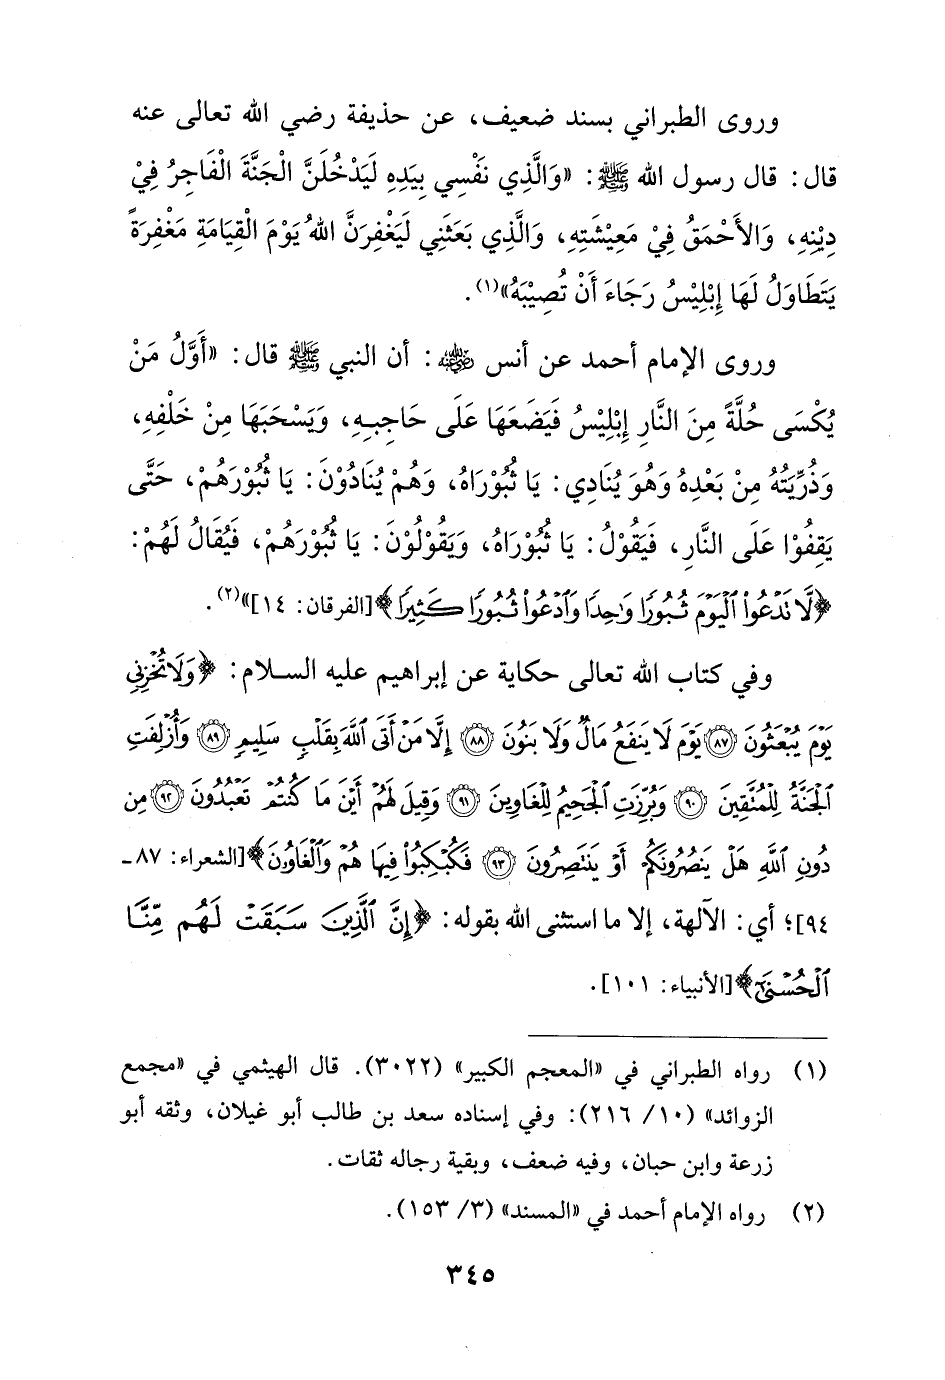 وروى الطبراني بسند ضعيف، عن حذيفة رضي الله تعالى عنه
قال: قال رسول الله ﷺ: «وَالَّذِي نَفْسِي بِيَدِهِ لَيَدْخُلَنَّ الْجَنَّةَ الْفَاجِرُ فِيْ
دِيْنِهِ، وَالأَحْمَقُ فِيْ مَعِيْشَتِهِ، وَالَّذِي بَعَثَنِي لَيَغْفِرَنَّ اللهُ يَوْمَ الْقِيَامَةِ مَغْفِرَةً
يَتَطَاوَلُ لَهَا إِبْلِيْسُ رَجَاءَ أَنْ تُصِيْبَهُ»(١).
وروى الإمام أحمد عن أنس رضي الله عنه: أن النبي ﷺ قال: «أَوَّلُ مَنْ
يُكْسَى حُلَّةً مِنَ النَّارِ إِبْلِيْسُ فَيَضَعَهَا عَلَى حَاجِبِهِ، وَيَسْحَبَهَا مِنْ خَلْفِهِ،
وَذُرِّيَتُهُ مِنْ بَعْدِهُ وَهُوَ يُنَادِي: يَا ثُبُوْرَاهُ، وَهُمْ يُنَادُوْنَ: يَا ثُبُوْرَهُمْ، حَتَّى
يَقِفُوْا عَلَى النَّارِ، فَيَقُوْلُ: يَا ثُبُوْرَاهُ، وَيَقُوْلُوْنَ: يَا ثُبُوْرَهُمْ، فَيُقَالُ لَهُمْ:
﴿لَّا تَدْعُوا۟ ٱلْيَوْمَ ثُبُورًا وَٰحِدًا وَٱدْعُوا۟ ثُبُورًا كَثِيرًا﴾[الفرقان: ١٤]»(٢).
وفي كتاب الله تعالى حكاية عن إبراهيم عليه السلام: ﴿وَلَا تُخْزِنِي
يَوْمَ يُبْعَثُونَ ٨٧ يَوْمَ لَا يَنفَعُ مَالٌ وَلَا بَنُونَ ٨٨ إِلَّا مَنْ أَتَى ٱللَّهَ بِقَلْبٍ سَلِيمٍ ٨٩ وَأُزْلِفَتِ
ٱلْجَنَّةُ لِلْمُتَّقِينَ ٩٠ وَبُرِّزَتِ ٱلْجَحِيمُ لِلْغَاوِينَ ٩١ وَقِيلَ لَهُمْ أَيْنَ مَا كُنتُمْ تَعْبُدُونَ ٩٢ مِن
دُونِ ٱللَّهِ هَلْ يَنصُرُونَكُمْ أَوْ يَنتَصِرُونَ ٩٣ فَكُبْكِبُوا۟ فِيهَا هُمْ وَٱلْغَاوُۥنَ﴾[الشعراء: ٨٧ـ
٩٤]؛ أي: الآلهة، إلا ما استثنى الله بقوله: ﴿إِنَّ ٱلَّذِينَ سَبَقَتْ لَهُم مِّنَّا
ٱلْحُسْنَىٰٓ﴾[الأنبياء: ١٠١].
(١) رواه الطبراني في «المعجم الكبير» (٣٠٢٢). قال الهيثمي في «مجمع
الزوائد» (١٠/ ٢١٦): وفي إسناده سعد بن طالب أبو غيلان، وثقه أبو
زرعة وابن حبان، وفيه ضعف، وبقية رجاله ثقات.
(٢) رواه الإمام أحمد في «المسند» (٣/ ١٥٣).
٣٤٥